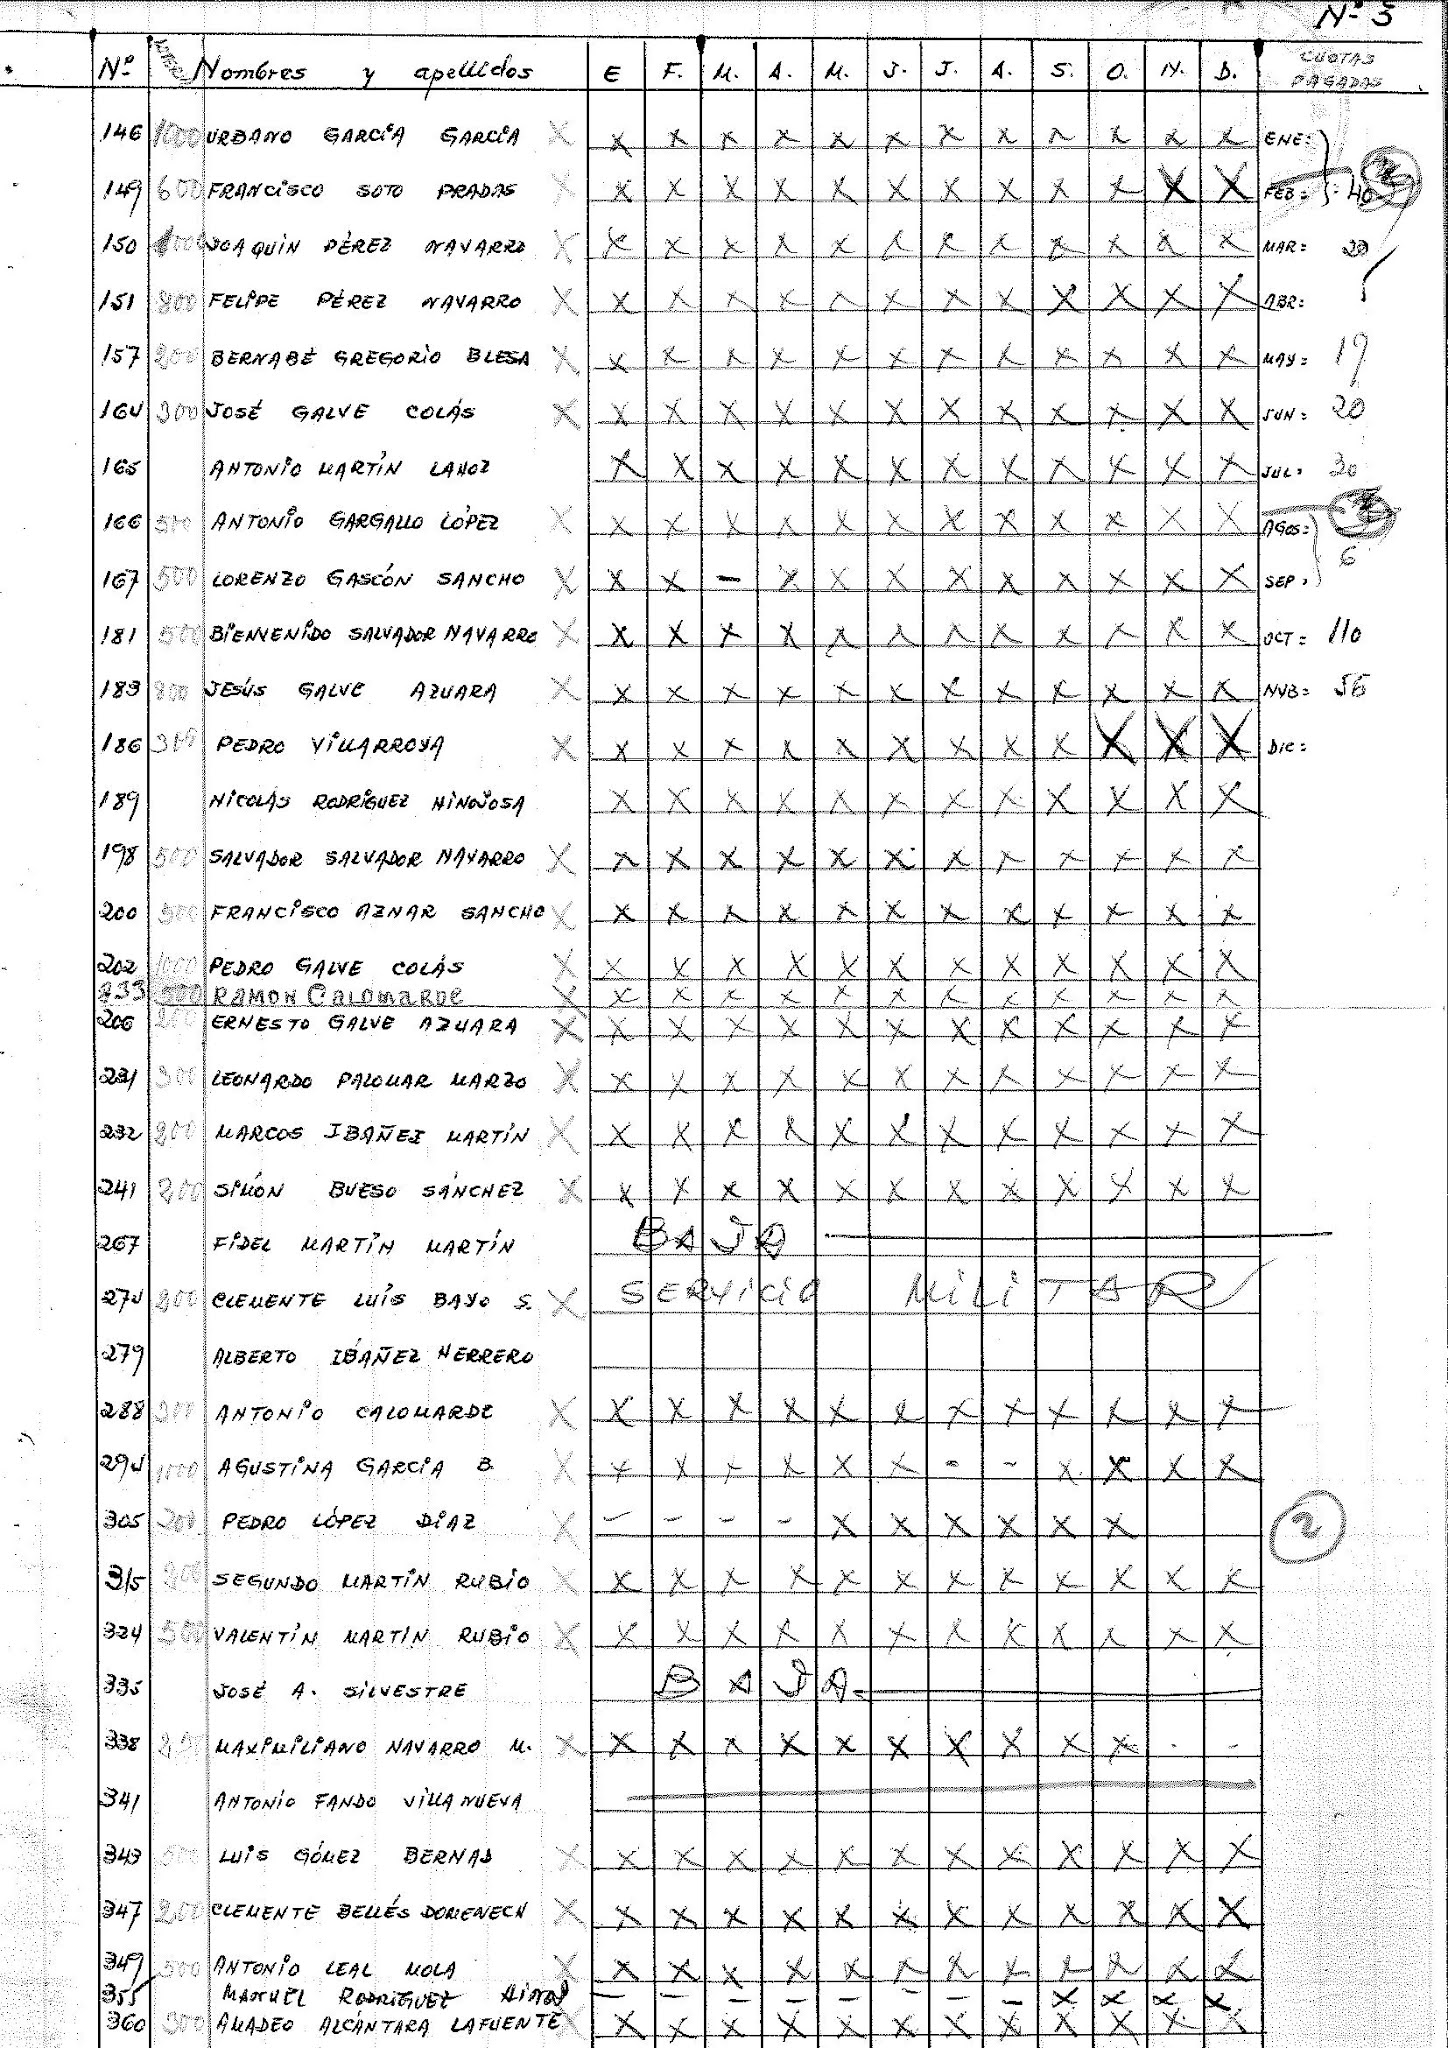 Nº 5
Nº Nombres y apellidos E F. M. A. M. J. J. A. S. O. N. D. CUOTAS PAGADAS
146 1000 URBANO GARCÍA GARCÍA X X X X X X X X X X X X X ENE:
149 600 FRANCISCO SOTO PRADAS X X X X X X X X X X X X X FEB: 40
150 1000 JOAQUÍN PÉREZ NAVARRO X X X X X X X X X X X X X MAR: 20
151 800 FELIPE PÉREZ NAVARRO X X X X X X X X X X X X X ABR:
157 200 BERNABÉ GREGORIO BLESA X X X X X X X X X X X X X MAY: 19
164 300 JOSÉ GALVE COLÁS X X X X X X X X X X X X X JUN: 20
165 ANTONIO MARTÍN LAHOZ X X X X X X X X X X X X JUL: 30
166 500 ANTONIO GARGALLO LÓPEZ X X X X X X X X X X X X X AGOS:
167 500 LORENZO GASCÓN SANCHO X X X - X X X X X X X X X SEP. 6
181 500 BIENVENIDO SALVADOR NAVARRO X X X X X X X X X X X X X OCT: 110
183 800 JESÚS GALVE AZUARA X X X X X X X X X X X X X NVB: 56
186 300 PEDRO VILLARROYA X X X X X X X X X X X X X DIC:
189 NICOLÁS RODRÍGUEZ HINOJOSA X X X X X X X X X X X X
198 500 SALVADOR SALVADOR NAVARRO X X X X X X X X X X X X X
200 500 FRANCISCO AZNAR SANCHO X X X X X X X X X X X X X
202 1000 PEDRO GALVE COLÁS X X X X X X X X X X X X X
233 500 RAMON CALOMARDE X X X X X X X X X X X X X
206 200 ERNESTO GALVE AZUARA X X X X X X X X X X X X X
231 300 LEONARDO PALOMAR MARZO X X X X X X X X X X X X X
232 200 MARCOS IBAÑEZ MARTÍN X X X X X X X X X X X X X
241 200 SIMÓN BUESO SÁNCHEZ X X X X X X X X X X X X X
267 FIDEL MARTÍN MARTÍN BAJA
274 200 CLEMENTE LUÍS BAYO S. X SERVICIO MILITAR
279 ALBERTO IBÁÑEZ HERRERO
288 300 ANTONIO CALOMARDE X X X X X X X X X X X X X
294 1000 AGUSTINA GARCIA B. X X X X X X X - - X X X X
305 200 PEDRO LÓPEZ DÍAZ X - - - - X X X X X X 2
315 200 SEGUNDO MARTÍN RUBIO X X X X X X X X X X X X X
324 500 VALENTÍN MARTÍN RUBIO X X X X X X X X X X X X X
335 JOSÉ A. SILVESTRE BAJA
338 250 MAXIMILIANO NAVARRO M. X X X X X X X X X X X - -
341 ANTONIO FANDO VILLANUEVA
343 500 LUIS GÓMEZ BERNAD X X X X X X X X X X X X X
347 200 CLEMENTE BELLÉS DOMENECH X X X X X X X X X X X X X
349 500 ANTONIO LEAL MOLA X X X X X X X X X X X X X
355 MANUEL RODRIGUEZ - - - - - - - - X X X X
360 300 AMADEO ALCÁNTARA LAFUENTE X X X X X X X X X X X X X